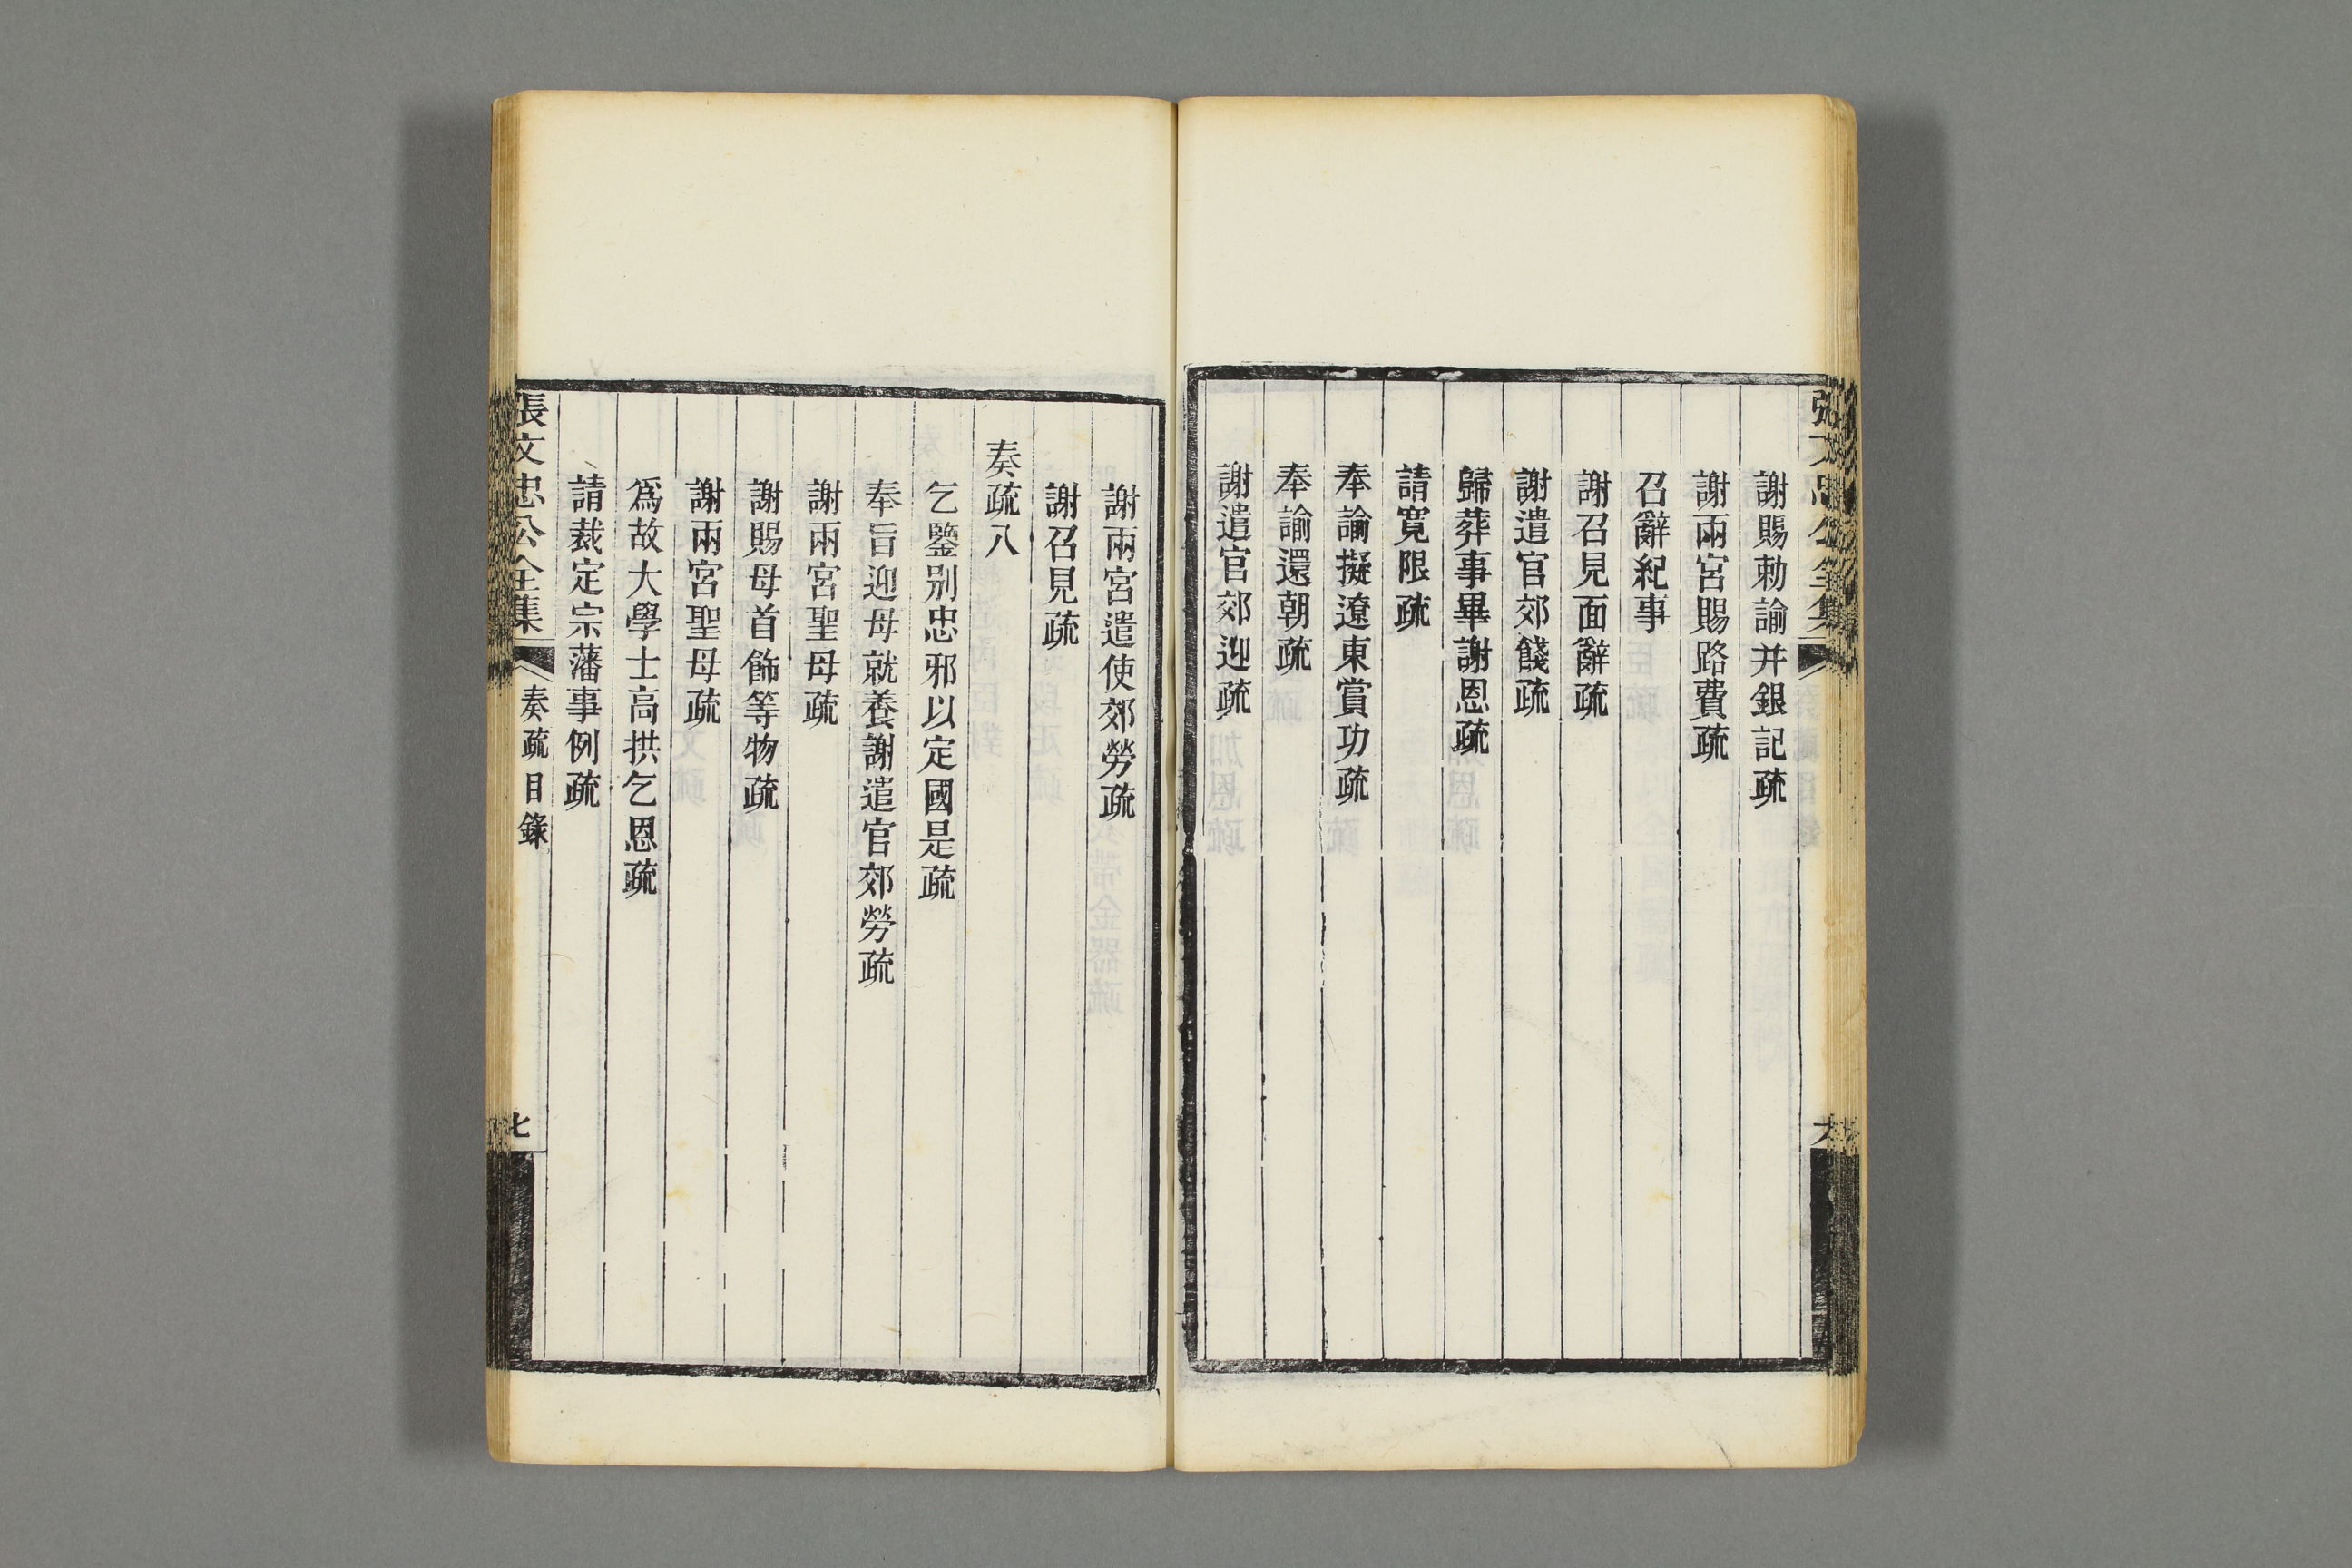 謝賜勅諭并銀記疏
謝兩宮賜路費疏
召辭紀事
謝召見面辭疏
謝遣官郊餞疏
歸葬事畢謝恩疏
請寬限疏
奉諭擬遼東賞功疏
奉諭還朝疏
謝遣官郊迎疏
謝兩宮遣使郊勞疏
謝召見疏
奏疏八
乞鑒别忠邪以定國是疏
奉旨迎母就養謝遣官郊勞疏
謝兩宮聖母疏
謝賜母首飾等物疏
謝兩宮聖母疏
爲故大學士高拱乞恩疏
請裁定宗藩事例疏
張文忠公全集
奏疏目錄
七